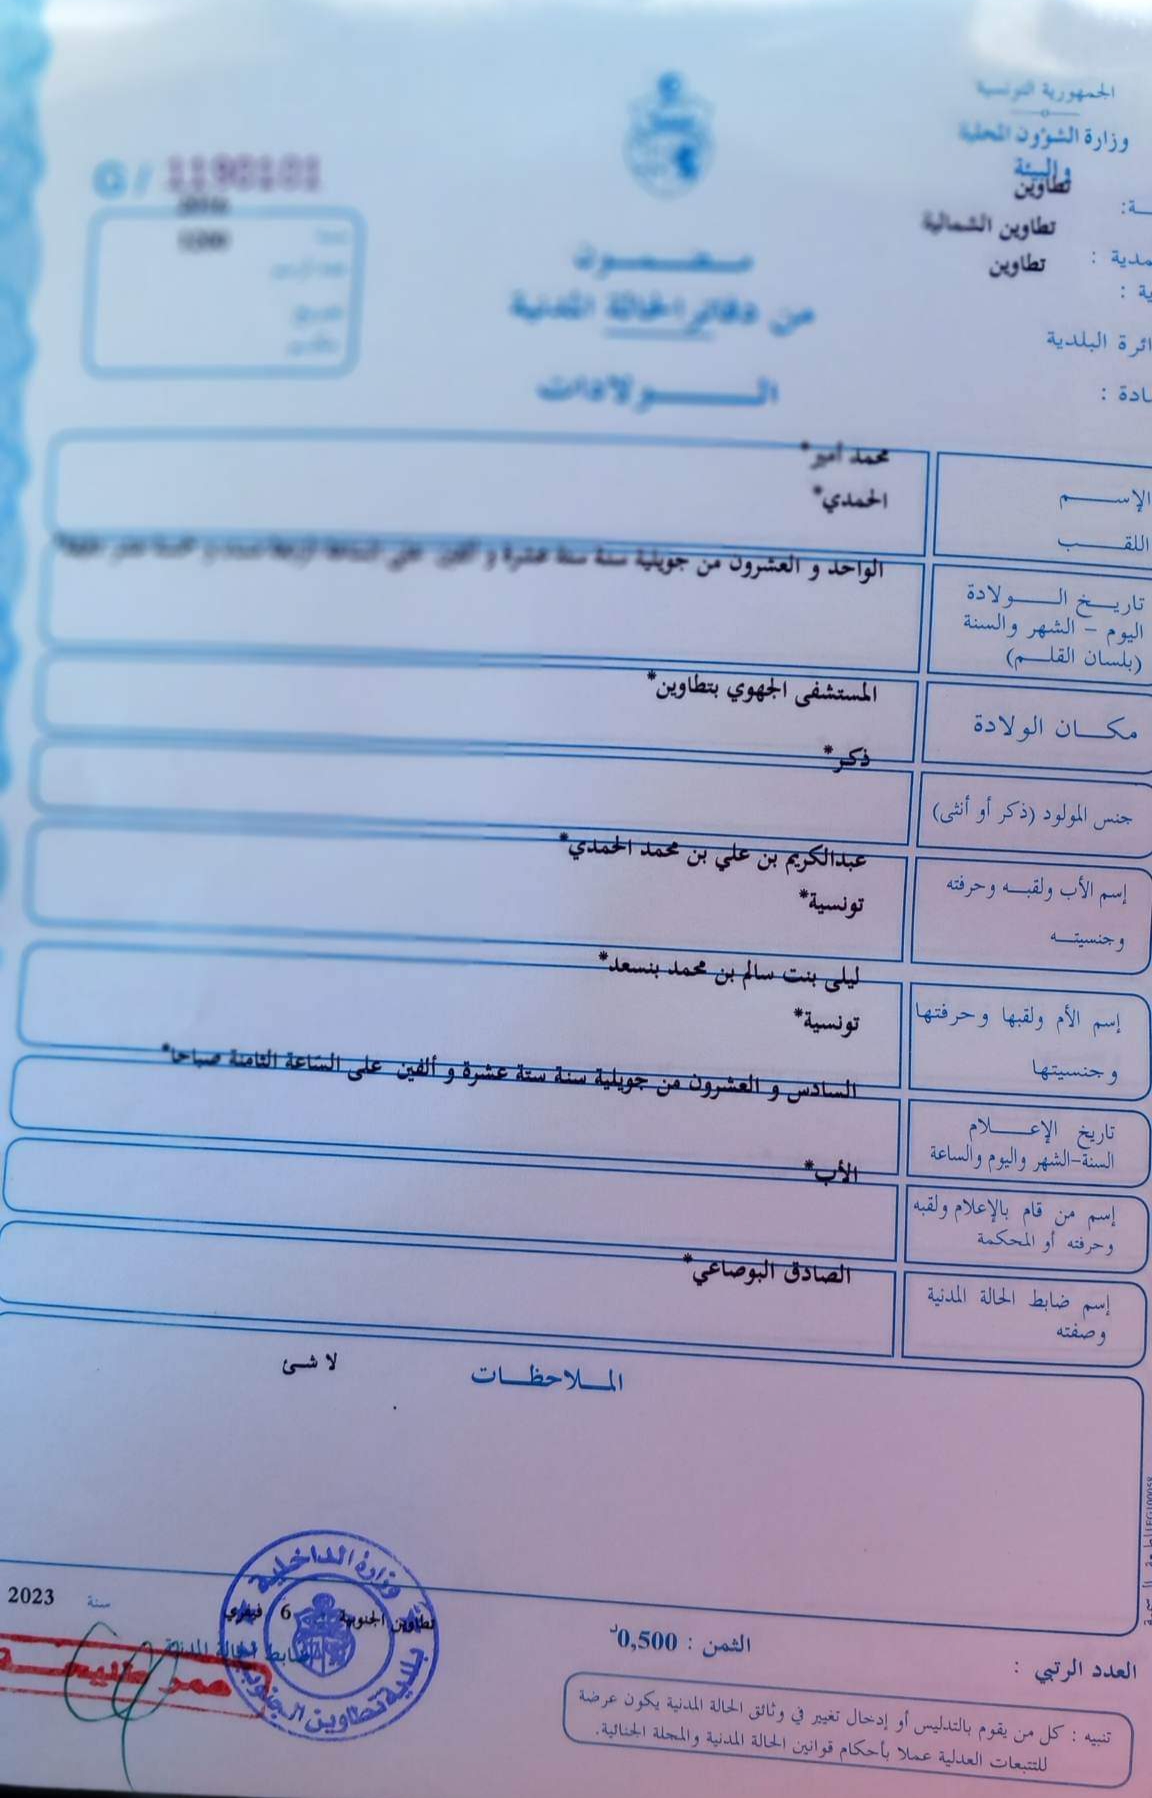 الجمهورية التونسية
وزارة الشؤون المحلية
والبيئة
تطاوين
تطاوين الشمالية
تطاوين
G / 1190101
مضمون
من دفاتر الحالة المدنية
الولادات
الإسم
محمد أمير*
اللقب
الحمدي*
تاريخ الولادة
اليوم – الشهر والسنة
(بلسان القلم)
الواحد و العشرون من جويلية سنة ستة عشرة و ألفين على الساعة
مكان الولادة
المستشفى الجهوي بتطاوين*
جنس المولود (ذكر أو أنثى)
ذكر*
إسم الأب ولقبه وحرفته
وجنسيته
عبدالكريم بن علي بن محمد الحمدي*
تونسية*
إسم الأم ولقبها وحرفتها
وجنسيتها
ليلى بنت سالم بن محمد بنسعد*
تونسية*
تاريخ الإعلام
السنة-الشهر واليوم والساعة
السادس و العشرون من جويلية سنة ستة عشرة و ألفين على الساعة الثامنة صباحا*
إسم من قام بالإعلام ولقبه
وحرفته أو المحكمة
الأب*
إسم ضابط الحالة المدنية
وصفته
الصادق البوصاعي*
الملاحظات
لا شئ
تطاوين الجنوبية 6 فيفري سنة 2023
ضابط الحالة المدنية
وزارة الداخلية
بلدية تطاوين الجنوبية
الثمن : 0,500د
العدد الرتبي :
تنبيه : كل من يقوم بالتدليس أو إدخال تغيير في وثائق الحالة المدنية يكون عرضة
للتتبعات العدلية عملا بأحكام قوانين الحالة المدنية والمجلة الجنائية.